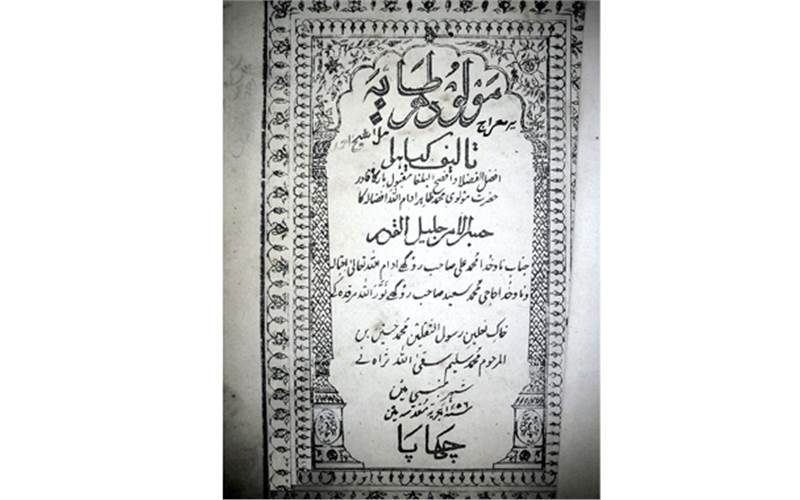 مولود طاہریہ
بہ معراج
تالیف کیا ہوا
افضل الفضلا و افصح البلغا مقبول بارگاہ قادر
حضرت مولوی محمد طاہر ادام اللہ افضالہ کا
حسب الامر جلیل القدر
جناب ناوخدا محمد علی صاحب روگھے ادام اللہ تعالیٰ اقبالہ
و ناوخدا حاجی محمد سعید صاحب روگھے نور اللہ مرقدہ کے
خاک نعلین رسول الثقلین محمد حسین بن
المرحوم محمد سلیم سقی اللہ ثراہ نے
شہر بمبئی میں
سنہ ۱۲۵۶ ہجریہ مقدسہ میں
چھاپا